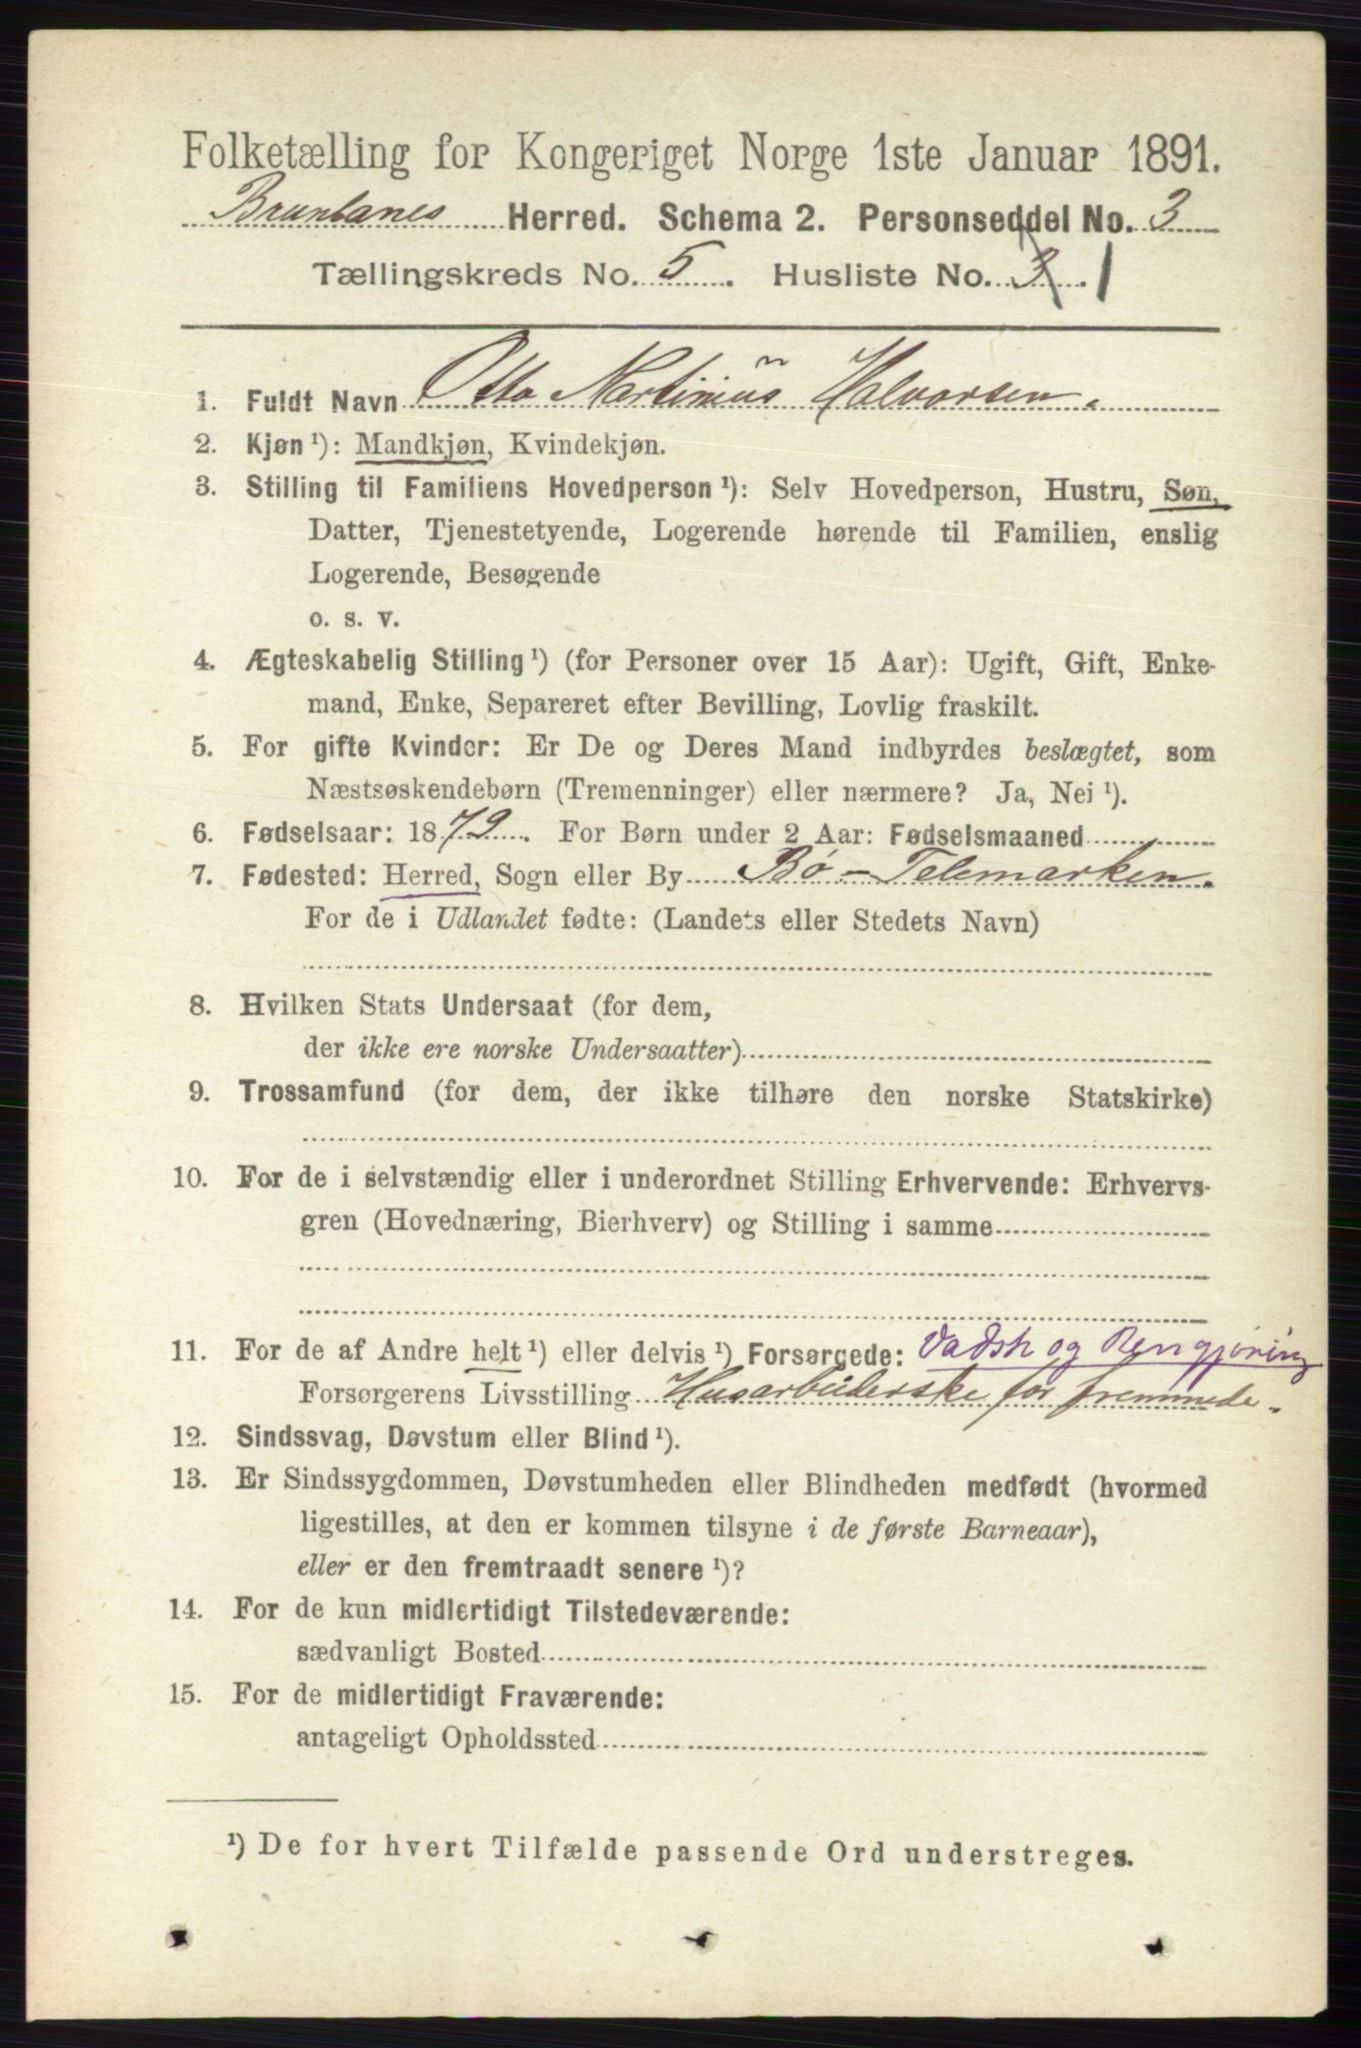 Folketælling for Kongeriget Norge 1ste Januar 1891.
Brunlanes Herred. Schema 2. Personseddel No. 3
Tællingskreds No. 5. Husliste No. 3. 1
1. Fuldt Navn Otto Martinius Halvorsen.
2. Kjøn ¹): Mandkjøn, Kvindekjøn.
3. Stilling til Familiens Hovedperson ¹): Selv Hovedperson, Hustru, Søn,
Datter, Tjenestetyende, Logerende hørende til Familien, enslig
Logerende, Besøgende
o. s. v.
4. Ægteskabelig Stilling ¹) (for Personer over 15 Aar): Ugift, Gift, Enke-
mand, Enke, Separeret efter Bevilling, Lovlig fraskilt.
5. For gifte Kvinder: Er De og Deres Mand indbyrdes beslægtet, som
Næstsøskendebørn (Tremenninger) eller nærmere? Ja, Nei ¹).
6. Fødselsaar: 1879. For Børn under 2 Aar: Fødselsmaaned
7. Fødested: Herred, Sogn eller By Bø - Telemarken.
For de i Udlandet fødte: (Landets eller Stedets Navn)
8. Hvilken Stats Undersaat (for dem,
der ikke ere norske Undersaatter)
9. Trossamfund (for dem, der ikke tilhøre den norske Statskirke)
10. For de i selvstændig eller i underordnet Stilling Erhvervende: Erhvervs-
gren (Hovednæring, Bierhverv) og Stilling i samme
11. For de af Andre helt ¹) eller delvis ¹) Forsørgede: Vadsk og Rengjøring
Forsørgerens Livsstilling Husarbeiderske for fremmede.
12. Sindssvag, Døvstum eller Blind ¹).
13. Er Sindssygdommen, Døvstumheden eller Blindheden medfødt (hvormed
ligestilles, at den er kommen tilsyne i de første Barneaar),
eller er den fremtraadt senere ¹)?
14. For de kun midlertidigt Tilstedeværende:
sædvanligt Bosted
15. For de midlertidigt Fraværende:
antageligt Opholdssted
¹) De for hvert Tilfælde passende Ord understreges.